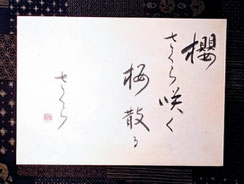 櫻
さくら咲く
桜散る
さくら